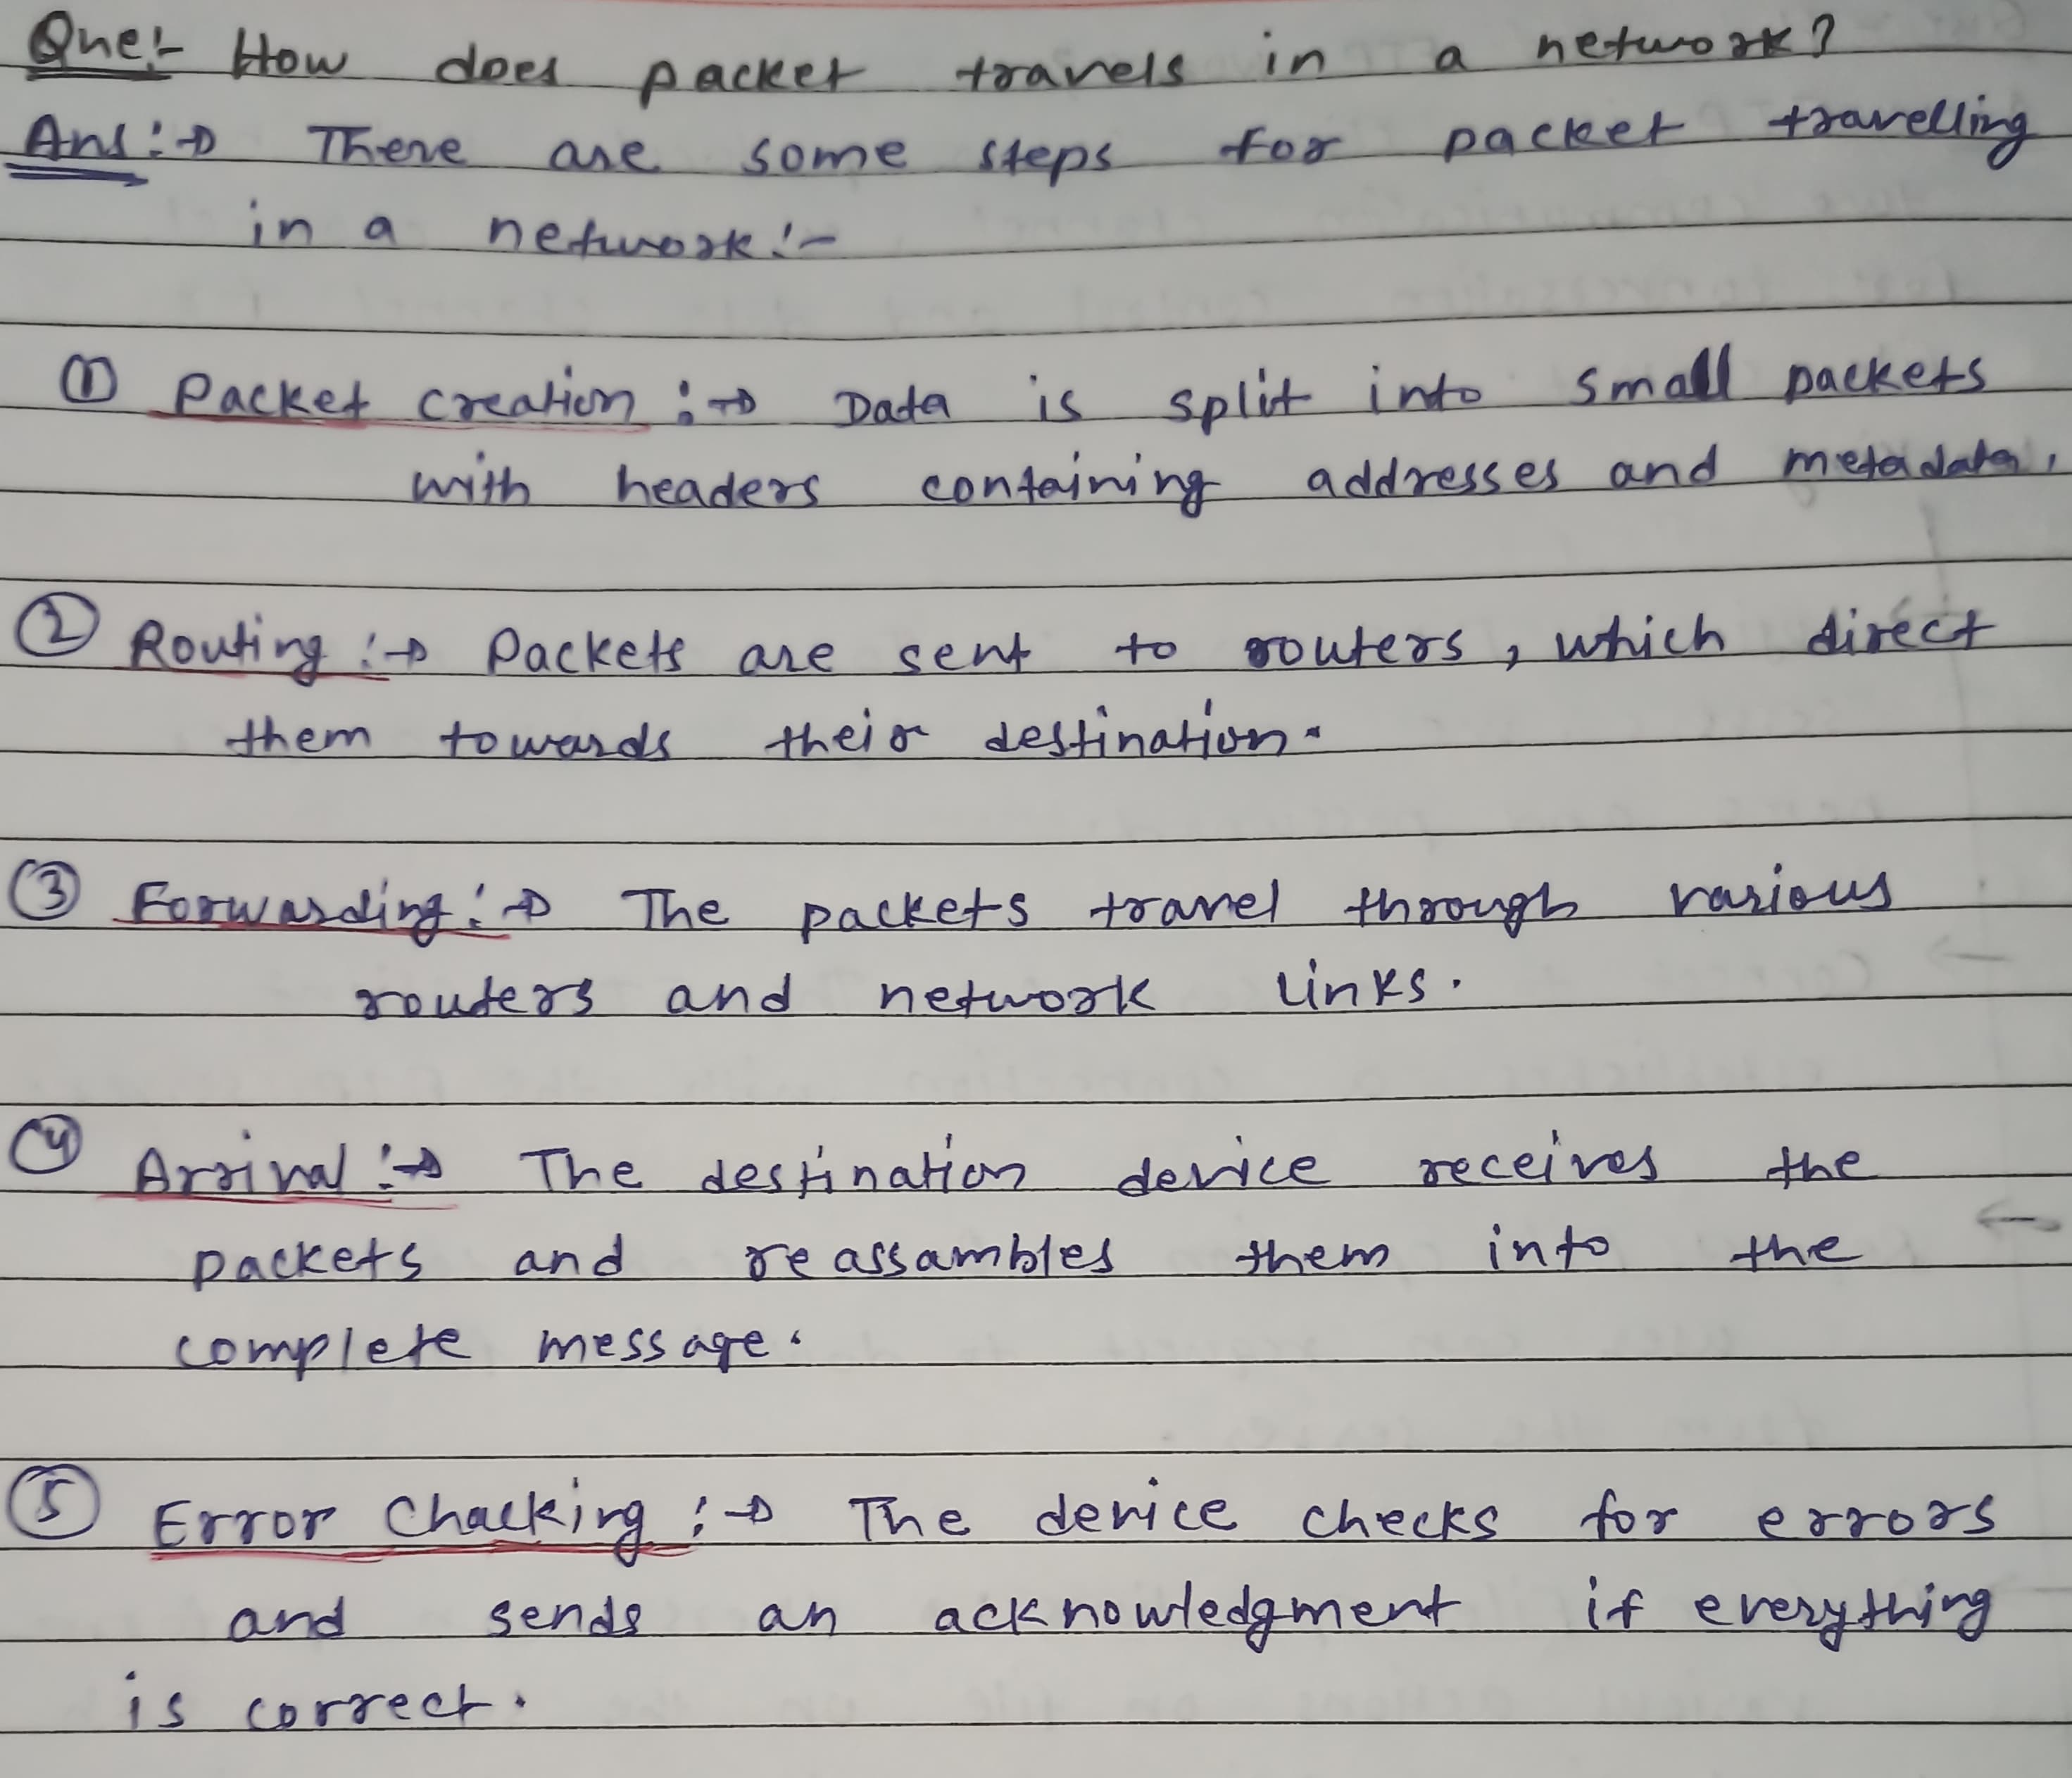 Que:- How does packet travels in a network?
Ans:→ There are some steps for packet travelling
in a network:-
① Packet creation :→ Data is split into small packets
with headers containing addresses and metadata.
② Routing :→ Packets are sent to routers, which direct
them towards their destination.
③ Forwarding :→ The packets travel through various
routers and network links.
④ Arrival :→ The destination device receives the
packets and reassambles them into the
complete message.
⑤ Error Chacking :→ The device checks for errors
and sends an acknowledgment if everything
is correct.